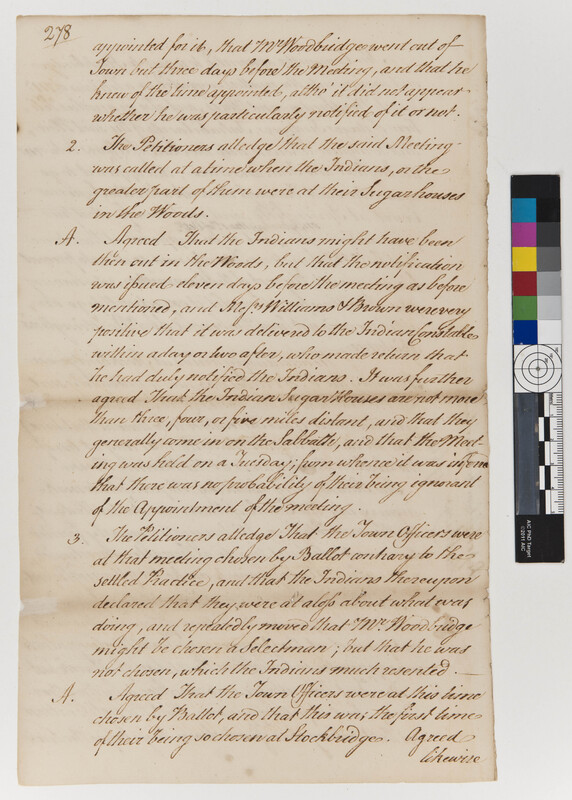 278
appointed for it, that Mr. Woodbridge went out of
Town but three days before the Meeting, and that he
knew of the time appointed, altho' it did not appear
whether he was particularly notified of it or not.
2. The Petitioners alledge that the said Meeting
was called at a time when the Indians, or the
greater part of them were at their Sugar houses
in the Woods.
A. Agreed That the Indians might have been
then out in the Woods, but that the notification
was issued eleven days before the meeting as before
mentioned, and Messrs. Williams & Brown were very
positive that it was delivered to the Indian Constable
within a day or two after, who made return that
he had duly notified the Indians. It was further
agreed That the Indian Sugar Houses are not more
than three, four, or five miles distant, and that they
generally come in on the Sabbath, and that the Meet-
ing was held on a Tuesday; from whence it was inferred
that there was no probability of their being ignorant
of the Appointment of the meeting.
3. The Petitioners alledge That the Town Officers were
at that meeting chosen by Ballot contrary to the
settled Practice, and that the Indians thereupon
declared that they were at a loss about what was
doing, and repeatedly moved that Mr. Woodbridge
might be chosen a Selectman; but that he was
not chosen, which the Indians much resented.
A. Agreed That the Town Officers were at this time
chosen by Ballot, and that this was the first time
of their being so chosen at Stockbridge. Agreed
likewise
AIC PhD Target
©2011 AIC